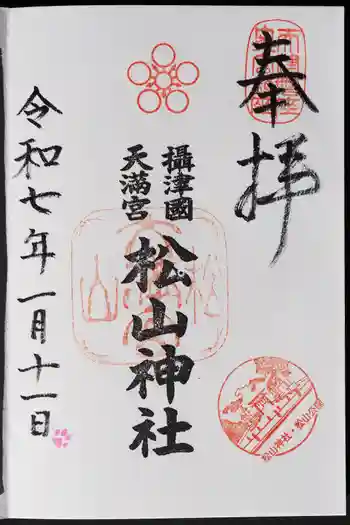 奉拝
攝津國
天満宮
松山神社
松山神社・松山公園
令和七年一月十一日